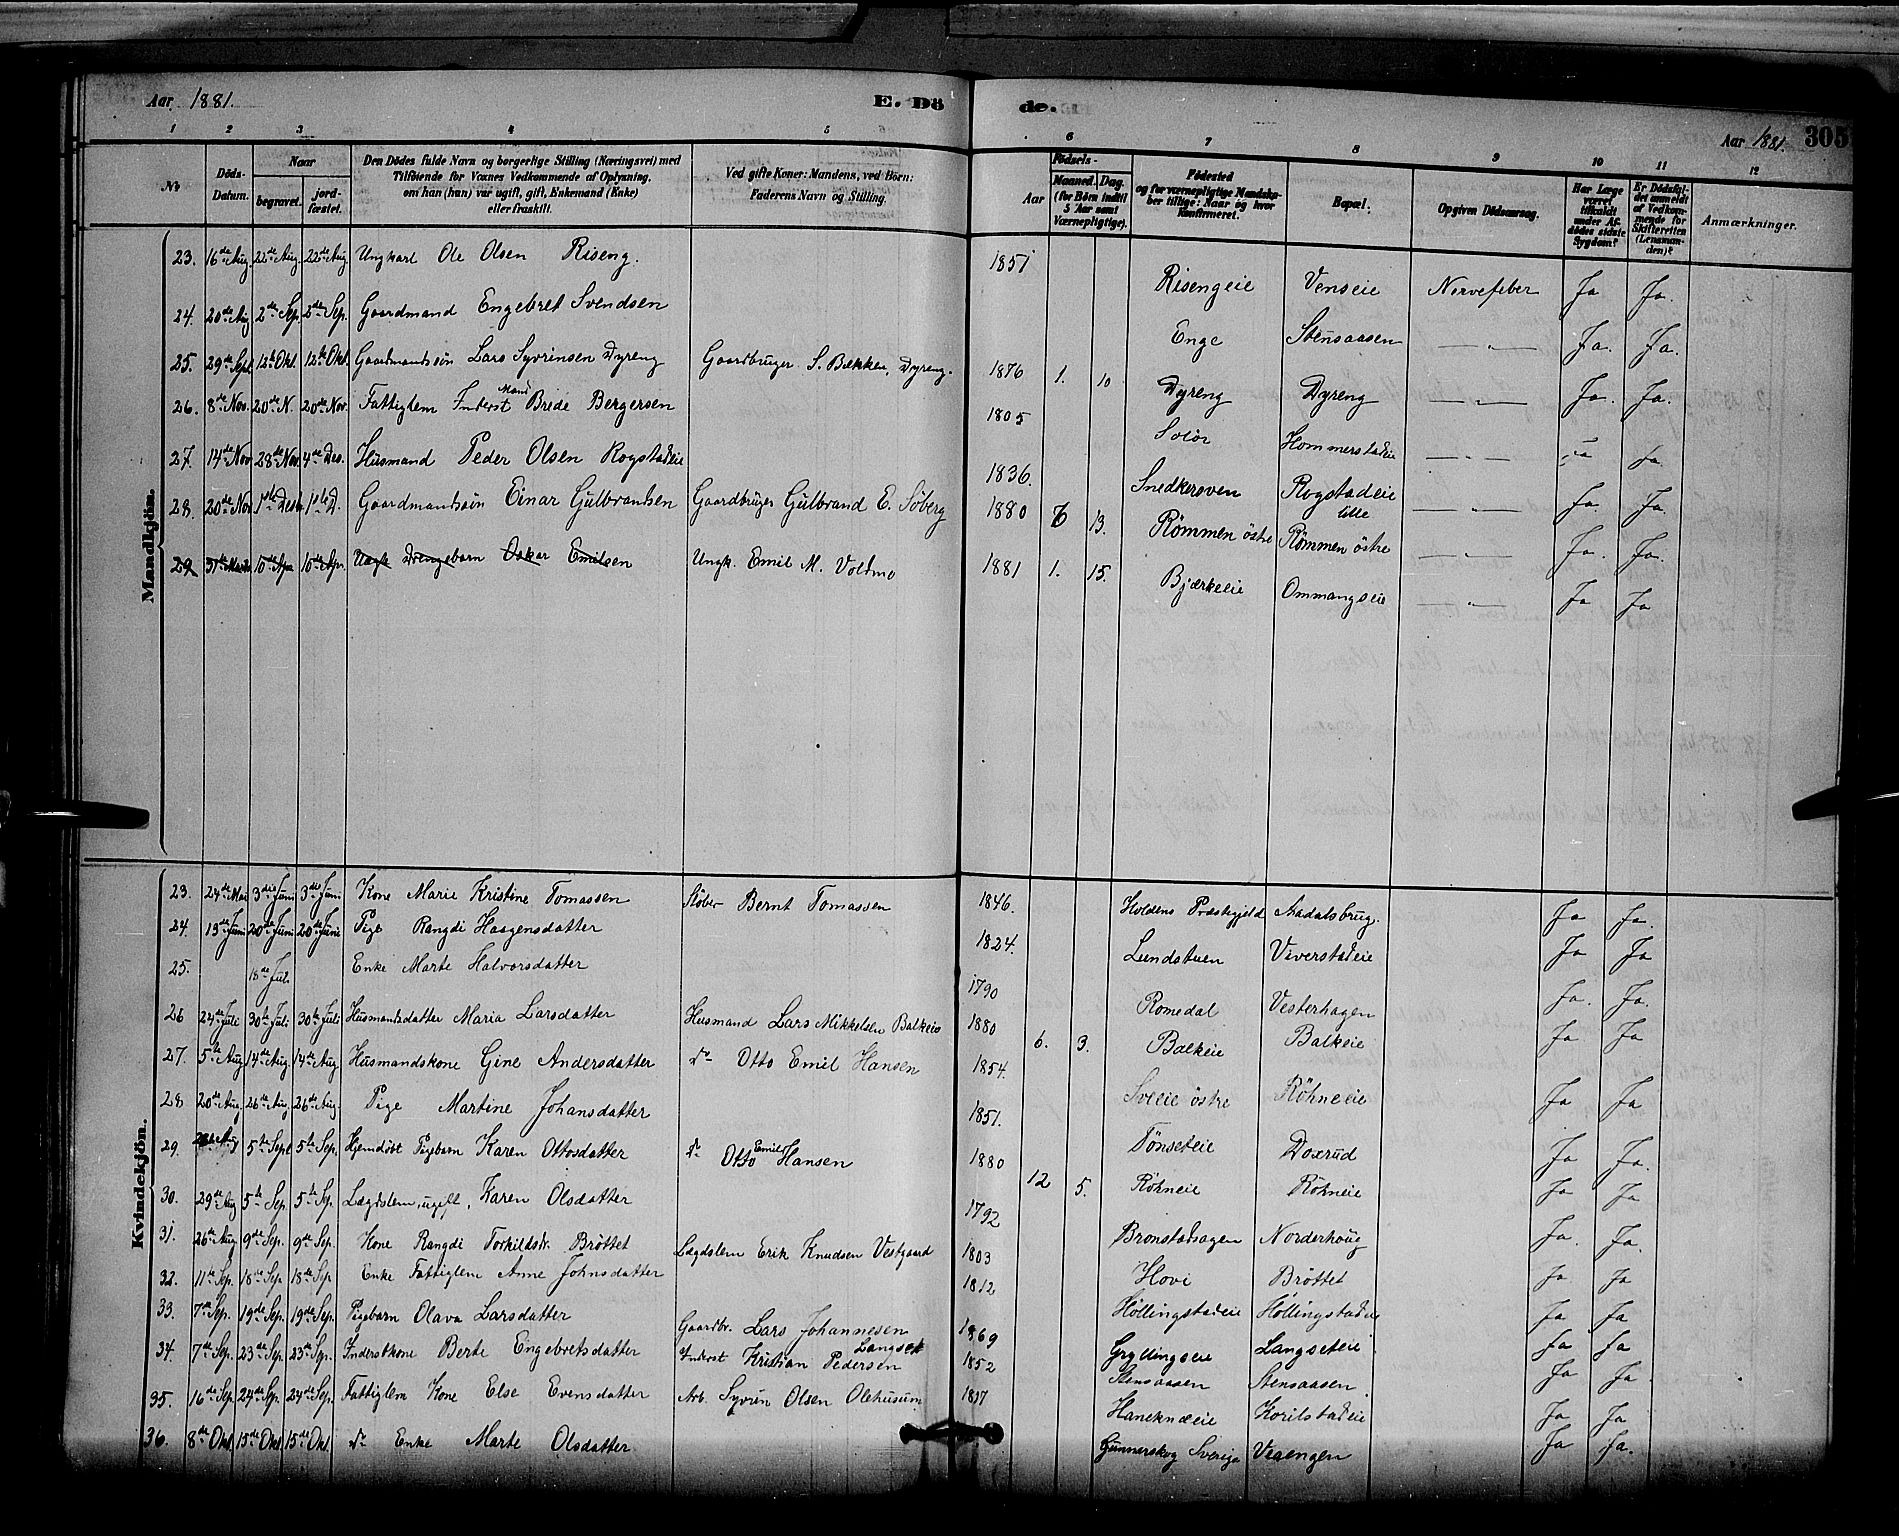 Aar 1881. E. Dö de. Aar 1881. 305
1 2 3 4 5 6 7 8 9 10 11 12
No
Döds-Datum.
Naar
begravet.
jord-fæstet.
Den Dödes fulde Navn og borgerlige Stilling (Næringsvei) med Tilföiende for Voxnes Vedkommende af Oplysning, om han (hun) var ugift, gift, Enkemand (Enke) eller fraskilt.
Ved gifte Koner: Mandens, ved Börn: Faderens Navn og Stilling.
Födsels-
Aar
Maaned.
Dag.
(for Börn indtil 5 Aar samt Værnepligtige).
Födested og for værnepligtige Mandskaber tillige: Naar og hvor konfirmeret.
Bopæl.
Opgiven Dödsaarsag.
Har Læge været tilkaldt under Afdödes sidste Sygdom?
Er Dödsfaldet anmeldt af Vedkommende for Skifteretten (Lensmanden)?
Anmærkninger.
Mandkjön.
23. 16de Aug. 22de Aug. 22de Aug Ungkarl Ole Olsen Riseng. 1851 Risengeie Venseie Nervefeber Ja Ja.
24. 20de Aug 2den Sep. 2den Sep. Gaardmand Engebret Svendsen Enge Stensaasen — " — Ja. Ja.
25. 29de Sept. 12te Okt. 12te Okt. Gaardmandssön Lars Syvrinsen Dyreng Gaardbruger S. Bækken, Dyreng. 1876 1. 10 Dyreng Dyreng — " — Ja. Ja.
26. 8de Nov. 20de N. 20de Nov. Fattiglem Inderst Mand Brede Bergersen 1805 Solör Hommerstadeie — " — Ja.
27. 14de Nov 28de Nov. 4de Des. Husmand Peder Olsen Rogstadeie 1836. Snedkersven Rogstadeie lille — " — Ja. Ja.
28. 20de Nov 1ste Desbr 1ste D. Gaardmandssön Einar Gulbrandsen Gaardbruger Gulbrand E. Söberg 1880 6 13. Römmen östre Römmen östre — " — Ja. Ja.
29 31te Marts 10de Apr 10de Apr. Ungk Drengebarn Oskar Emilsen Ungk. Emil M. Voldmo 1881 1. 15. Bjærkeeie Ommangseie — " — Ja Ja
Kvindekjön.
23. 24de Mai 3die Juni 3die Juni Kone Marie Kristine Tomassen Stöber Bernt Tomassen 1846. Holdens Præstegjeld Aadalsbrug. Ja Ja.
24. 13de Juni 20de Juni 20de Juni Pige Rangdi Haagensdatter 1824 Lundstuen Viverstadeie Ja Ja
25. 18de Juli Enke Marte Halvorsdatter 1790 Romedal Vesterhagen Ja. Ja.
26 24de Juli 30te Juli 30te Juli Husmandsdatter Maria Larsdatter Husmand Lars Mikkelsen Balkeie 1880 6. 3. Balkeie Balkeie Ja Ja
27. 5te Aug 14de Aug 14de Aug Husmandskone Gine Andersdatter do Otto Emil Hansen 1854. Sveie östre Röhneeie Ja Ja
28 20de Aug. 26de Aug 26de Aug. Pige Martine Johansdatter 1851. Tönseteie Doxrud Ja Ja.
29. Aug 5te Sept 5te Sep. Hjemdöbt Pigebarn Karen Ottosdatter do Otto Emil Hansen 1880 12 5. Röhneie Röhneie Ja Ja
30. 29de Aug 5te Sep. 5te Sep. Lægdslem, ugift, Karen Olsdatter 1792 Bronstadhagen Norderhoug Ja. Ja.
31. 26de Aug 9de Sep. 9de Sep. Kone Rangdi Torkildsdr. Bröttet Lægdslem Erik Knudsen Vestgaard 1803 Hovi Bröttet Ja Ja
32. 11te Sep. 18de Sep 18de Sep Enke Fattiglem Anne Johnsdatter 1812 Höllingstadeie Höllingstadeie Ja Ja
33. 7de Sep. 19de Sep. 19de Sep. Pigebarn Olava Larsdatter Gaardbr. Lars Johannesen Langset 1869 Gryllingseie Langseteie Ja Ja
34. 7de Sep. 23de Sep. 23de Sep. Inderstkone Berte Engebretsdatter Inderst Kristian Pedersen 1852 Stensaasen Stensaasen. Ja Ja.
35. 16de Sep. 24de Sep. 24de Sep. Fattiglem Kone Else Evensdatter Arb. Syvrin Olsen Olehusum 1817 Haneknæeie Korilstadeie Ja Ja
36. 8de Okt 15de Okt 15de Okt. do Enke Marte Olsdatter Gunnarskog Sverige Veaengen Ja Ja.